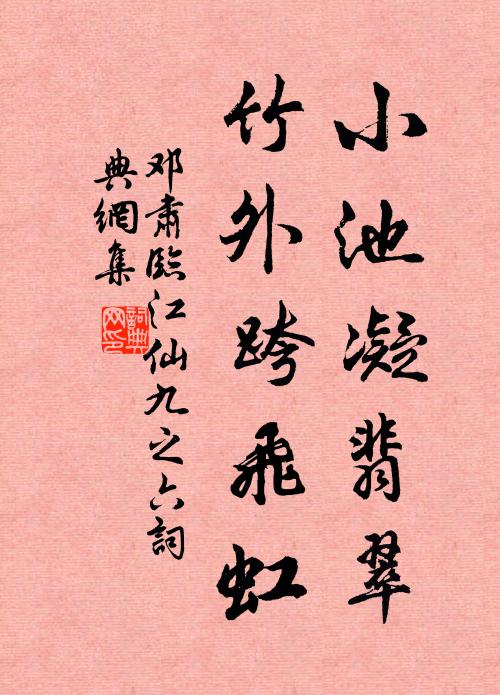 小池凝翡翠
竹外跨飛虹
邓肅臨江仙九之六詞
典網集
詞典
网印